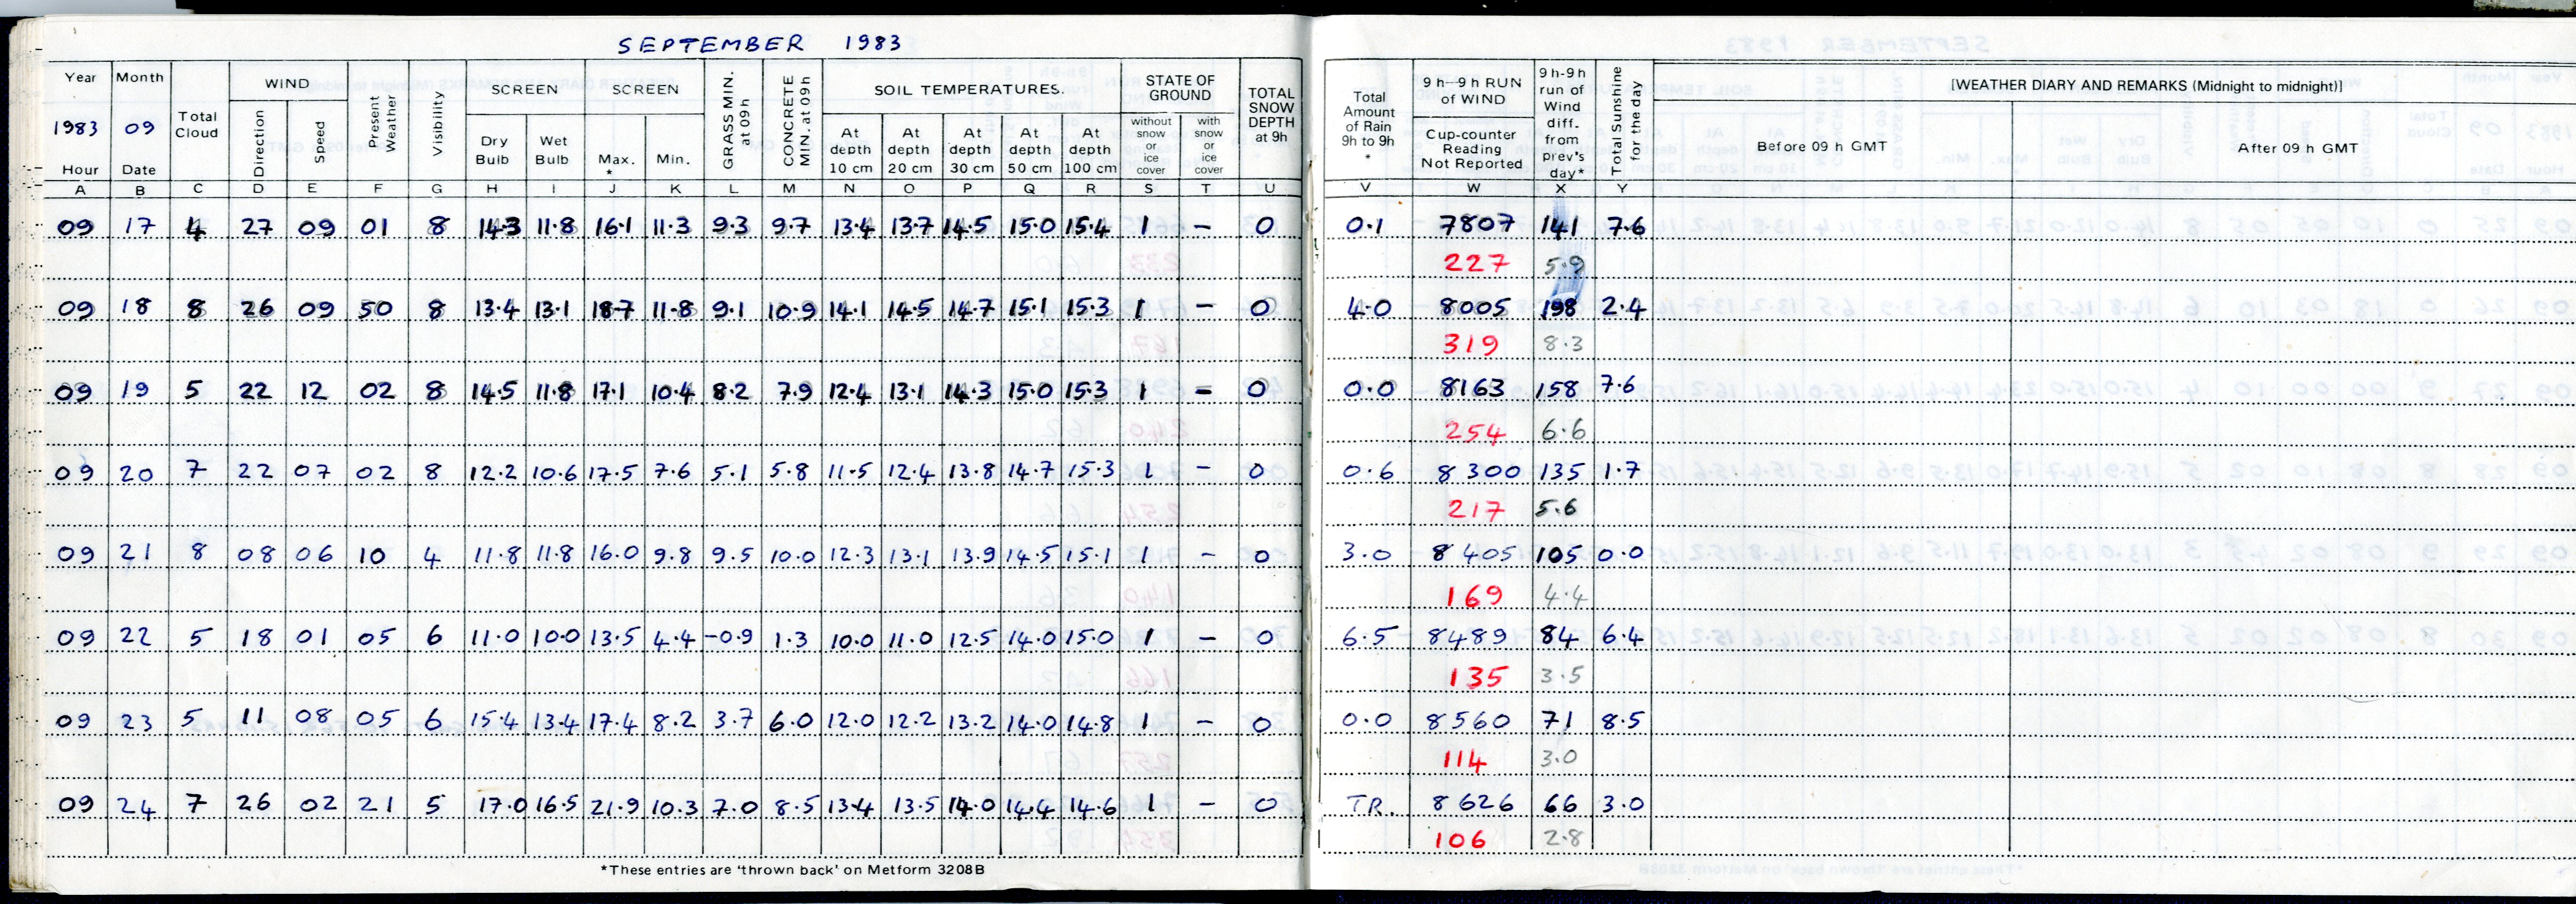 SEPTEMBER 1983
Year Month Total Cloud WIND Present Weather Visibility SCREEN SCREEN GRASS MIN. at 09h CONCRETE MIN. at 09h SOIL TEMPERATURES. STATE OF GROUND TOTAL SNOW DEPTH at 9h Total Amount of Rain 9h to 9h * 9 h–9 h RUN of WIND 9h-9h run of Wind diff. from prev's day* Total Sunshine for the day [WEATHER DIARY AND REMARKS (Midnight to midnight)]
1983 09 Direction Speed Dry Bulb Wet Bulb Max. * Min. At depth 10 cm At depth 20 cm At depth 30 cm At depth 50 cm At depth 100 cm without snow or ice cover with snow or ice cover Cup-counter Reading Not Reported Before 09 h GMT After 09 h GMT
Hour Date
A B C D E F G H I J K L M N O P Q R S T U V W X Y
09 17 4 27 09 01 8 14.3 11.8 16.1 11.3 9.3 9.7 13.4 13.7 14.5 15.0 15.4 1 – 0 0.1 7807 141 7.6
227 5.9
09 18 8 26 09 50 8 13.4 13.1 18.7 11.8 9.1 10.9 14.1 14.5 14.7 15.1 15.3 1 – 0 4.0 8005 198 2.4
319 8.3
09 19 5 22 12 02 8 14.5 11.8 17.1 10.4 8.2 7.9 12.4 13.1 14.3 15.0 15.3 1 – 0 0.0 8163 158 7.6
254 6.6
09 20 7 22 07 02 8 12.2 10.6 17.5 7.6 5.1 5.8 11.5 12.4 13.8 14.7 15.3 1 – 0 0.6 8300 135 1.7
217 5.6
09 21 8 08 06 10 4 11.8 11.8 16.0 9.8 9.5 10.0 12.3 13.1 13.9 14.5 15.1 1 – 0 3.0 8405 105 0.0
169 4.4
09 22 5 18 01 05 6 11.0 10.0 13.5 4.4 -0.9 1.3 10.0 11.0 12.5 14.0 15.0 1 – 0 6.5 8489 84 6.4
135 3.5
09 23 5 11 08 05 6 15.4 13.4 17.4 8.2 3.7 6.0 12.0 12.2 13.2 14.0 14.8 1 – 0 0.0 8560 71 8.5
114 3.0
09 24 7 26 02 21 5 17.0 16.5 21.9 10.3 7.0 8.5 13.4 13.5 14.0 14.4 14.6 1 – 0 TR. 8626 66 3.0
106 2.8
*These entries are 'thrown back' on Metform 3208B